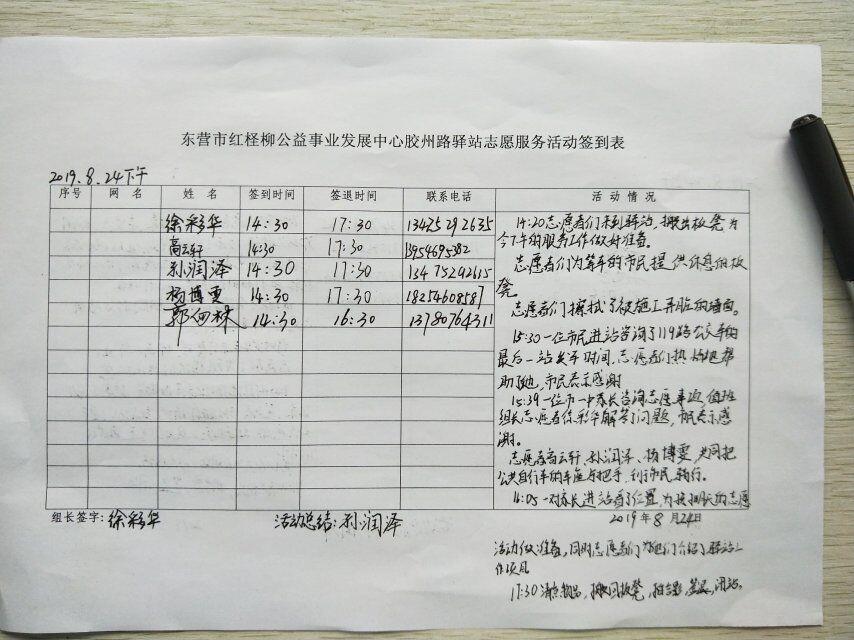 东营市红柽柳公益事业发展中心胶州路驿站志愿服务活动签到表
2019.8.24下午
序号 网名 姓名 签到时间 签退时间 联系电话 活动情况
徐彩华 14:30 17:30 13475292635
高云轩 14:30 17:30 13954695382
孙润泽 14:30 17:30 13475292615
杨博雯 14:30 17:30 18254608587
郭 林 14:30 16:30 13780764311
14:20志愿者们来到驿站,搬出板凳为
今下午的服务工作做好准备。
志愿者们为等车的市民提供休息的板
凳
志愿者们擦拭了被施工弄脏的墙面。
15:30一位市民进站咨询了119路公交车的
最后一站关车时间,志愿者们热情地帮
助了她,市民表示感谢
15:39一位市一中家长咨询志愿事项,值班
组长志愿者徐彩华解答了问题,市民表示感
谢。
志愿者高云轩、孙润泽、杨博雯,共同把
公共自行车的车座与把手,利于市民骑行。
16:05一对家长进站看了位置,为按期长的志愿
组长签字:徐彩华 活动总结:孙润泽 2019年8月24日
活动做准备,同时志愿者们为他们介绍了驿站工
作项目
17:30清点物品,搬回板凳,拍合影,签退,闭站。